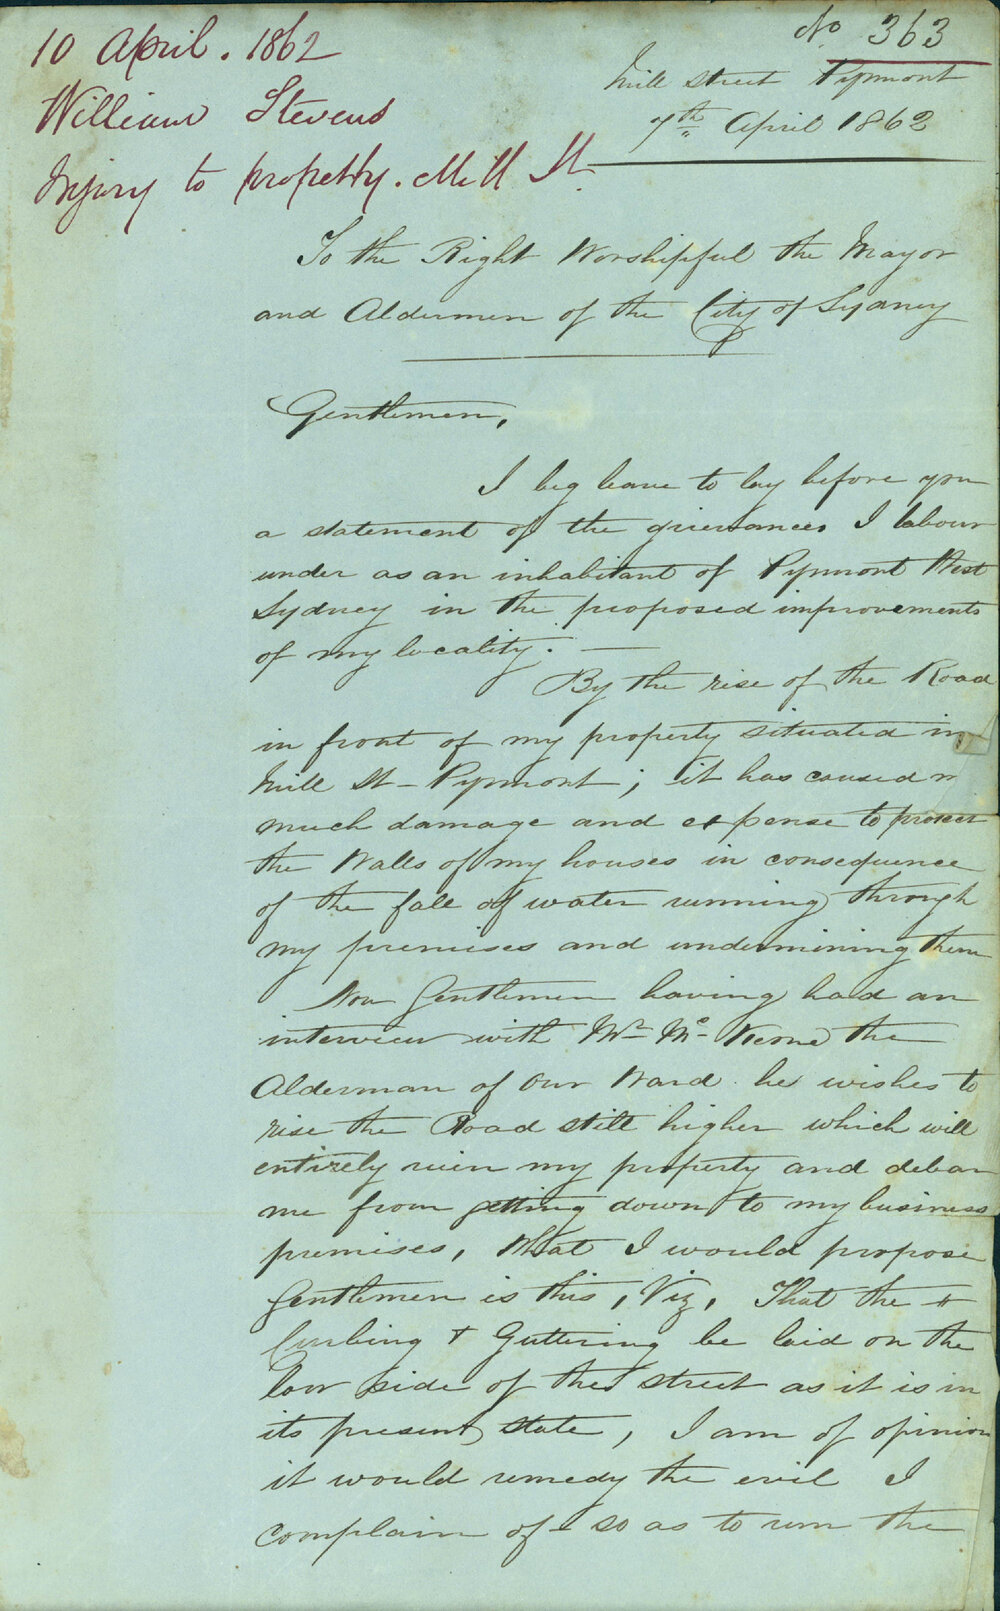 10 April. 1862
William Stevens
Injury to property. Mill St.
No. 363
Mill Street Pyrmont
7th April 1862
To the Right Worshipful the Mayor
and Aldermen of the City of Sydney
Gentlemen,
I beg leave to lay before you
a statement of the grievances I labour
under as an inhabitant of Pyrmont West
Sydney in the proposed improvements
of my locality. —
By the rise of the Road
in front of my property situated in
Mill St - Pyrmont; it has caused
much damage and expense to protect
the Walls of my houses in consequence
of the fall of water running through
my premises and undermining them
Now Gentlemen having had an
interview with Mr. Mc. Kerne the
Alderman of our Ward he wishes to
rise the Road still higher which will
entirely ruin my property and debar
me from getting down to my business
premises, What I would propose
Gentlemen is this, Viz, That the
Curbing + Guttering be laid on the
low side of the street as it is in
its present state, I am of opinion
it would remedy the evil I
complain of - so as to run the